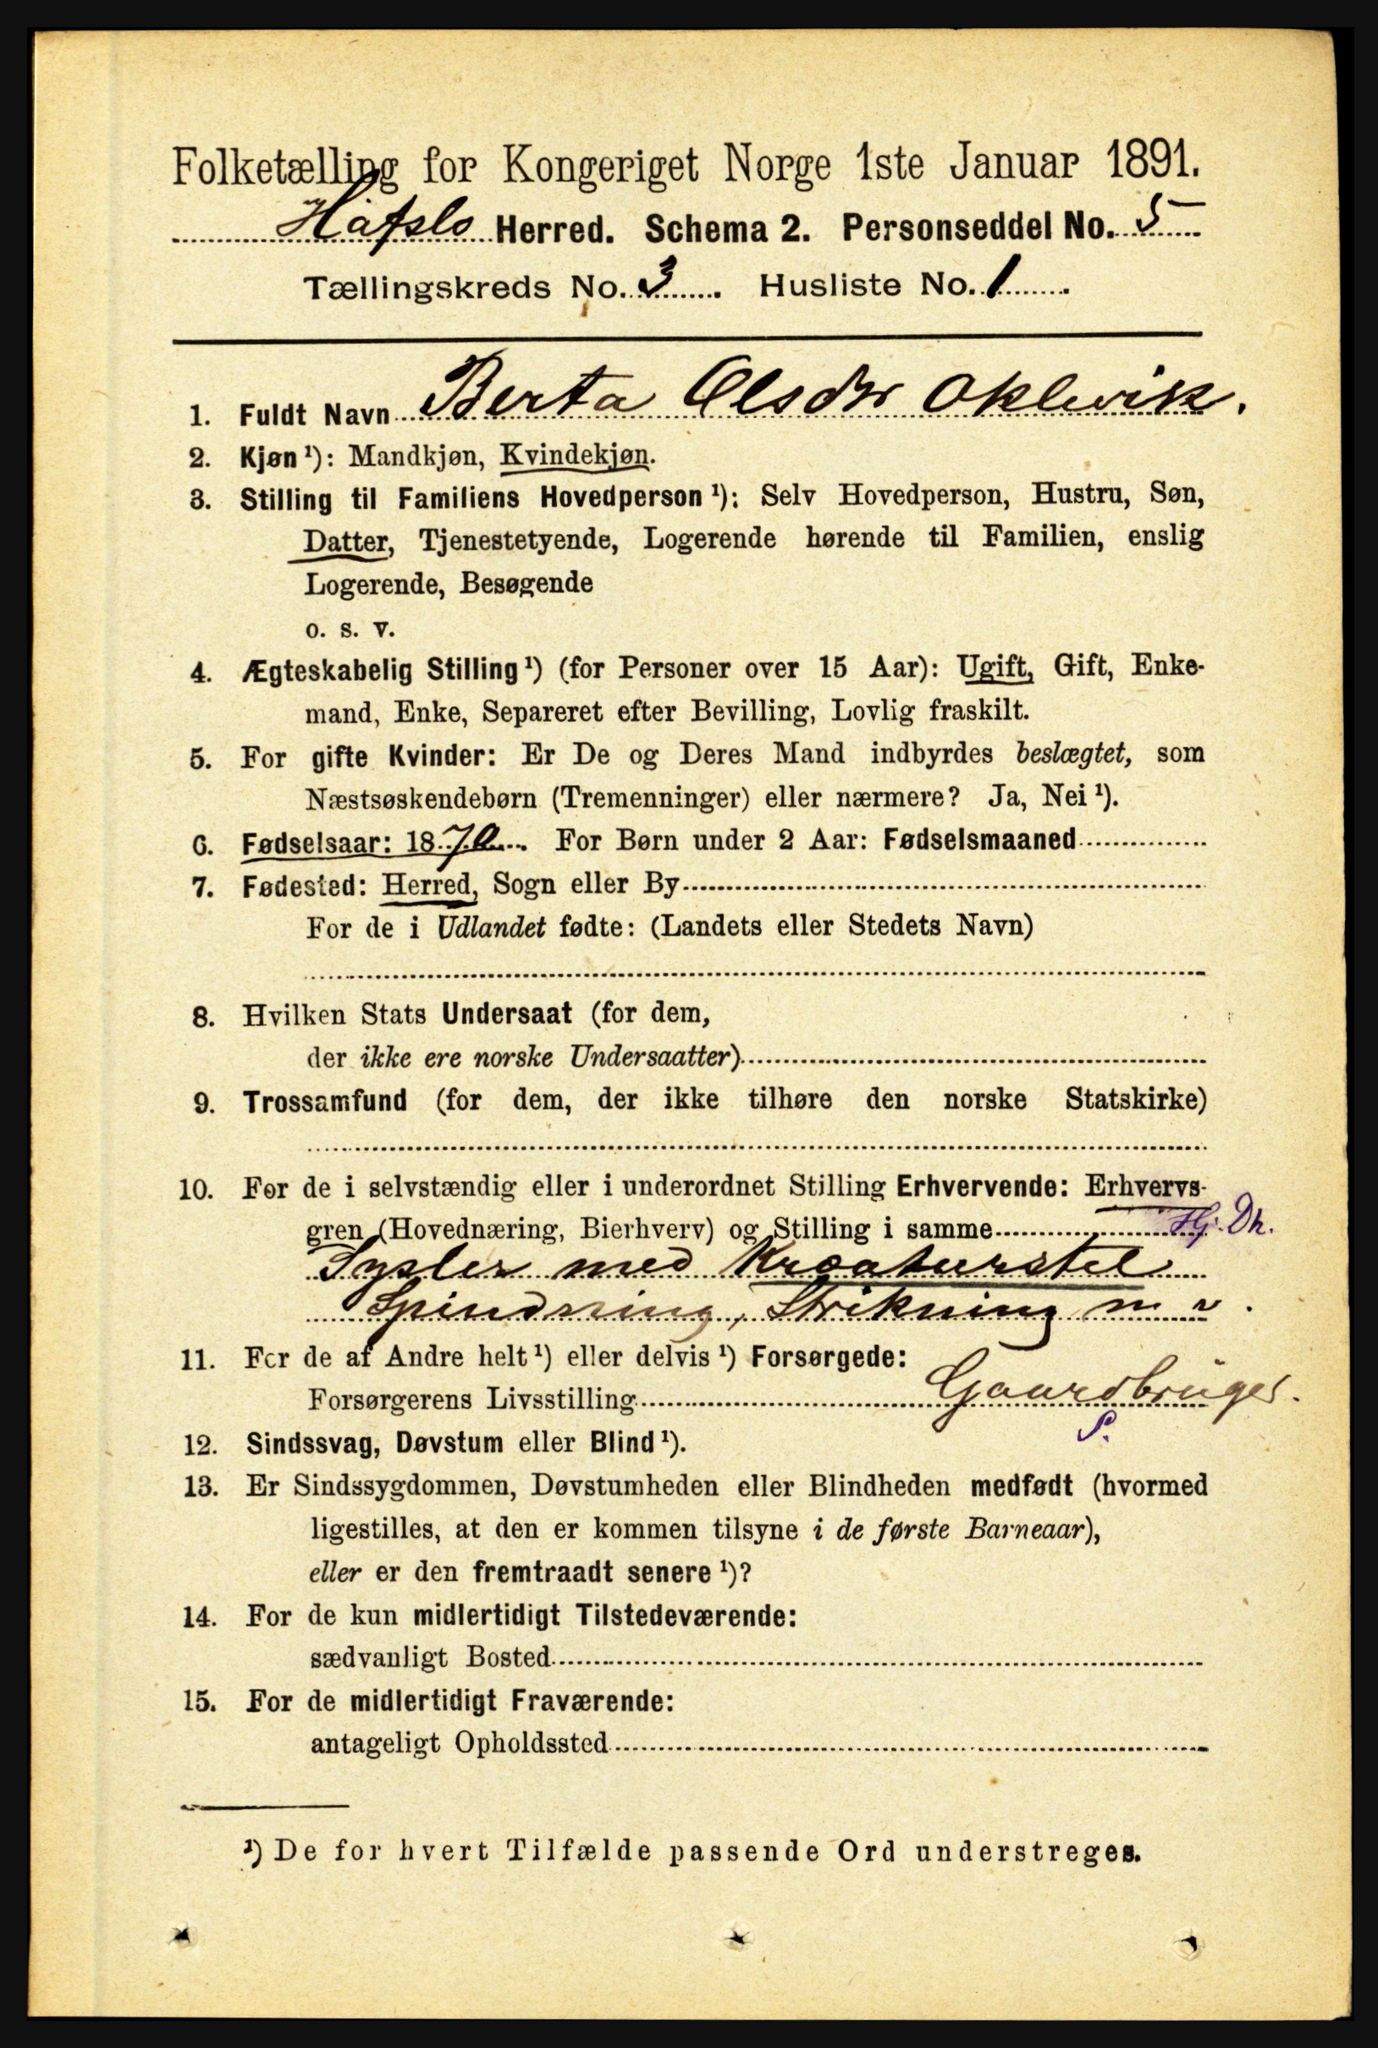 Folketælling for Kongeriget Norge 1ste Januar 1891.
Hafslo Herred. Schema 2. Personseddel No. 5
Tællingskreds No. 3. Husliste No. 1.
1. Fuldt Navn Berta Olsdtr Oklevik.
2. Kjøn ¹): Mandkjøn, Kvindekjøn.
3. Stilling til Familiens Hovedperson ¹): Selv Hovedperson, Hustru, Søn,
Datter, Tjenestetyende, Logerende hørende til Familien, enslig
Logerende, Besøgende
o. s. v.
4. Ægteskabelig Stilling ¹) (for Personer over 15 Aar): Ugift, Gift, Enke-
mand, Enke, Separeret efter Bevilling, Lovlig fraskilt.
5. For gifte Kvinder: Er De og Deres Mand indbyrdes beslægtet, som
Næstsøskendebørn (Tremenninger) eller nærmere? Ja, Nei ¹).
6. Fødselsaar: 1870. For Børn under 2 Aar: Fødselsmaaned
7. Fødested: Herred, Sogn eller By
For de i Udlandet fødte: (Landets eller Stedets Navn)
8. Hvilken Stats Undersaat (for dem,
der ikke ere norske Undersaatter)
9. Trossamfund (for dem, der ikke tilhøre den norske Statskirke)
10. For de i selvstændig eller i underordnet Stilling Erhvervende: Erhvervs-
gren (Hovednæring, Bierhverv) og Stilling i samme Hj. Dh.
Sysler med Kreaturstel
Spindning, Strikning m v.
11. For de af Andre helt ¹) eller delvis ¹) Forsørgede:
Forsørgerens Livsstilling Gaardbruger.
S.
12. Sindssvag, Døvstum eller Blind ¹).
13. Er Sindssygdommen, Døvstumheden eller Blindheden medfødt (hvormed
ligestilles, at den er kommen tilsyne i de første Barneaar),
eller er den fremtraadt senere ¹)?
14. For de kun midlertidigt Tilstedeværende:
sædvanligt Bosted
15. For de midlertidigt Fraværende:
antageligt Opholdssted
¹) De for hvert Tilfælde passende Ord understreges.